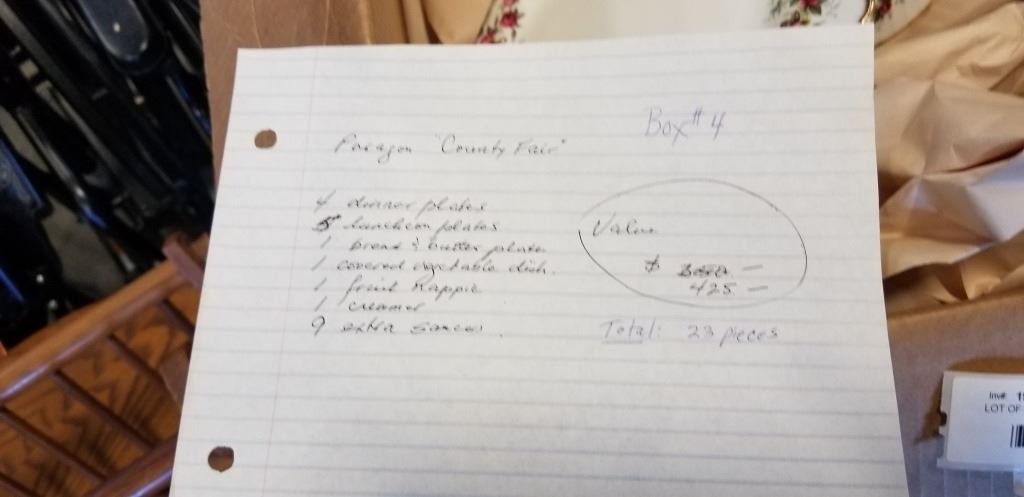 Box #4
Paragon "County Fair"
4 dinner plates
5 luncheon plates
1 bread & butter plate
1 covered vegetable dish.
1 fruit nappie
1 creamer
9 extra saucers.
Value
$
425 —
Total: 23 pieces
Inv#
LOT OF